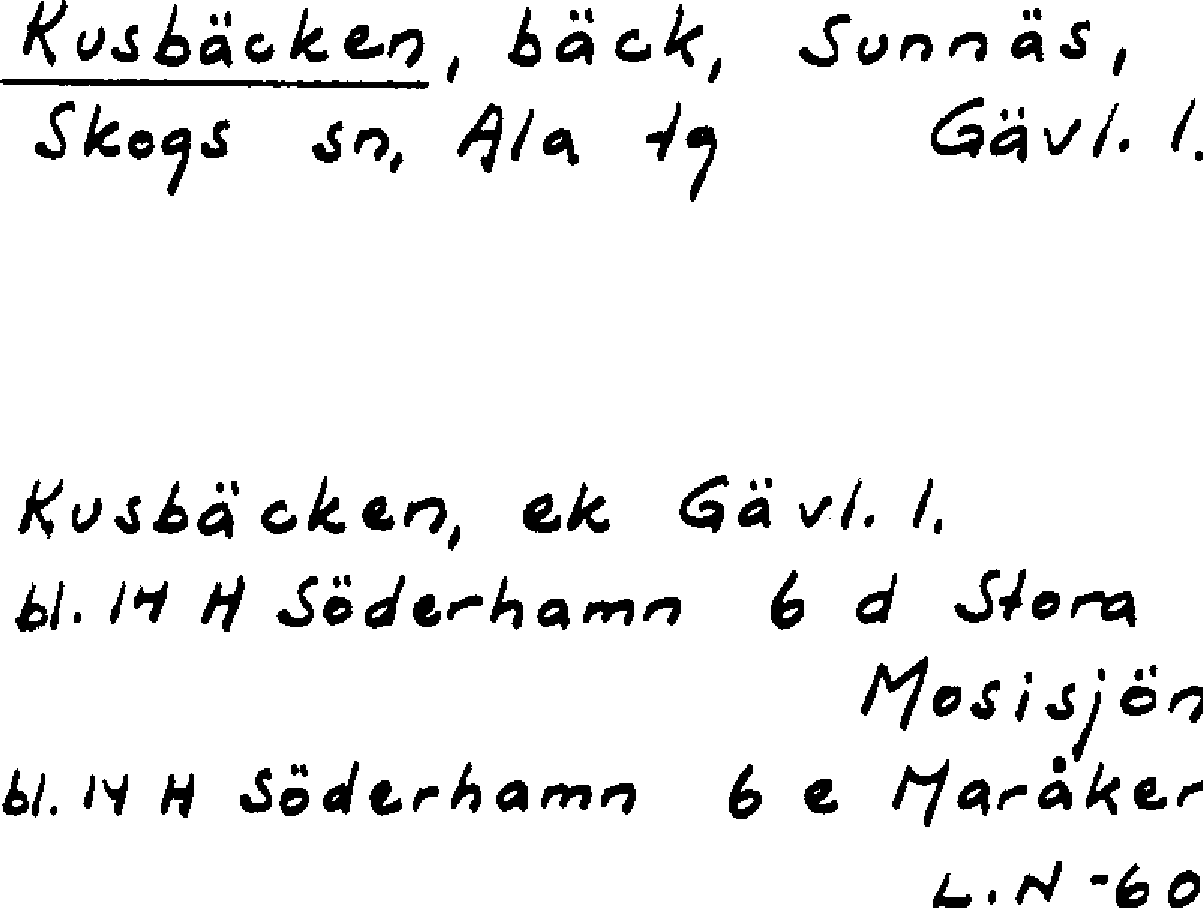 Kusbäcken, bäck, Sunnäs,
Skogs sn, Ala tg Gävl. l.
Kusbäcken, ek Gävl. l.
bl. 14 H Söderhamn 6 d Stora
Mosisjön
bl. 14 H Söderhamn 6 e Maråker
L.N -60